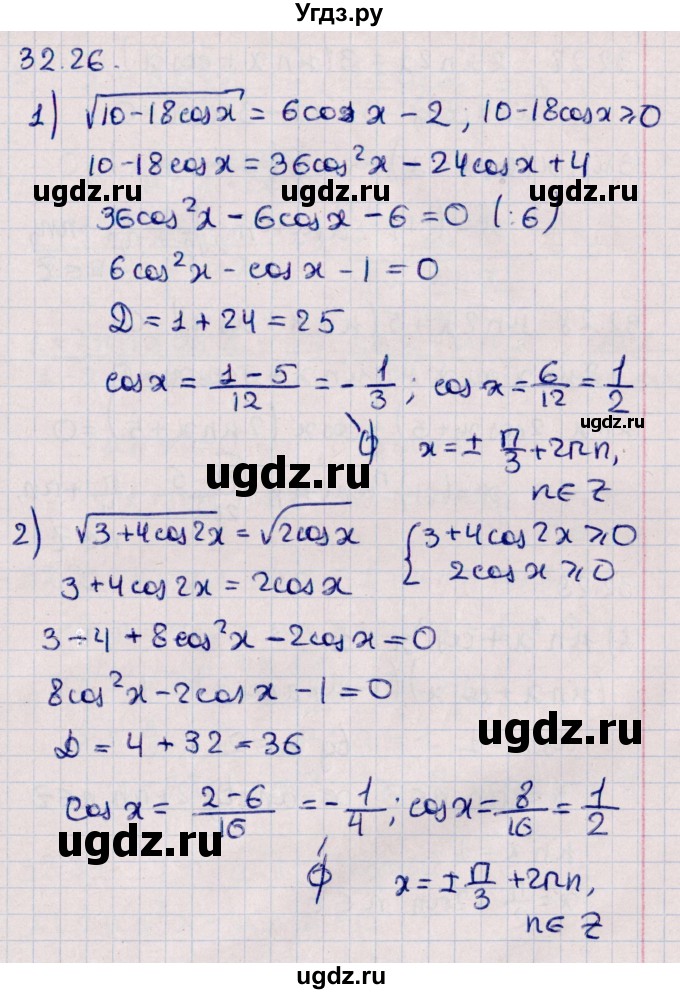 Угдз.ру
32.26.
1) √(10-18cosx) = 6cosx - 2 ; 10-18cosx ≥ 0
10-18cosx = 36cos²x - 24cosx + 4
ugdz.ru ugdz.ru ugdz.ru
36cos²x - 6cosx - 6 = 0 (:6)
6cos²x - cosx - 1 = 0
D = 1 + 24 = 25
cosx = (1-5)/12 = -1/3 ; cosx = 6/12 = 1/2
ugdz.ru
∅ x = ± π/3 + 2πn,
ugdz.ru
n ∈ Z
2) √(3+4cos2x) = √(2cosx) { 3+4cos2x ≥ 0
2cosx ≥ 0
3+4cos2x = 2cosx
3 - 4 + 8cos²x - 2cosx = 0
ugdz.ru ugdz.ru
8cos²x - 2cosx - 1 = 0
D = 4 + 32 = 36
cosx = (2-6)/16 = -1/4 ; cosx = 8/16 = 1/2
ugdz.ru ugdz.ru
∅ x = ± π/3 + 2πn,
n ∈ Z
ugdz.ru